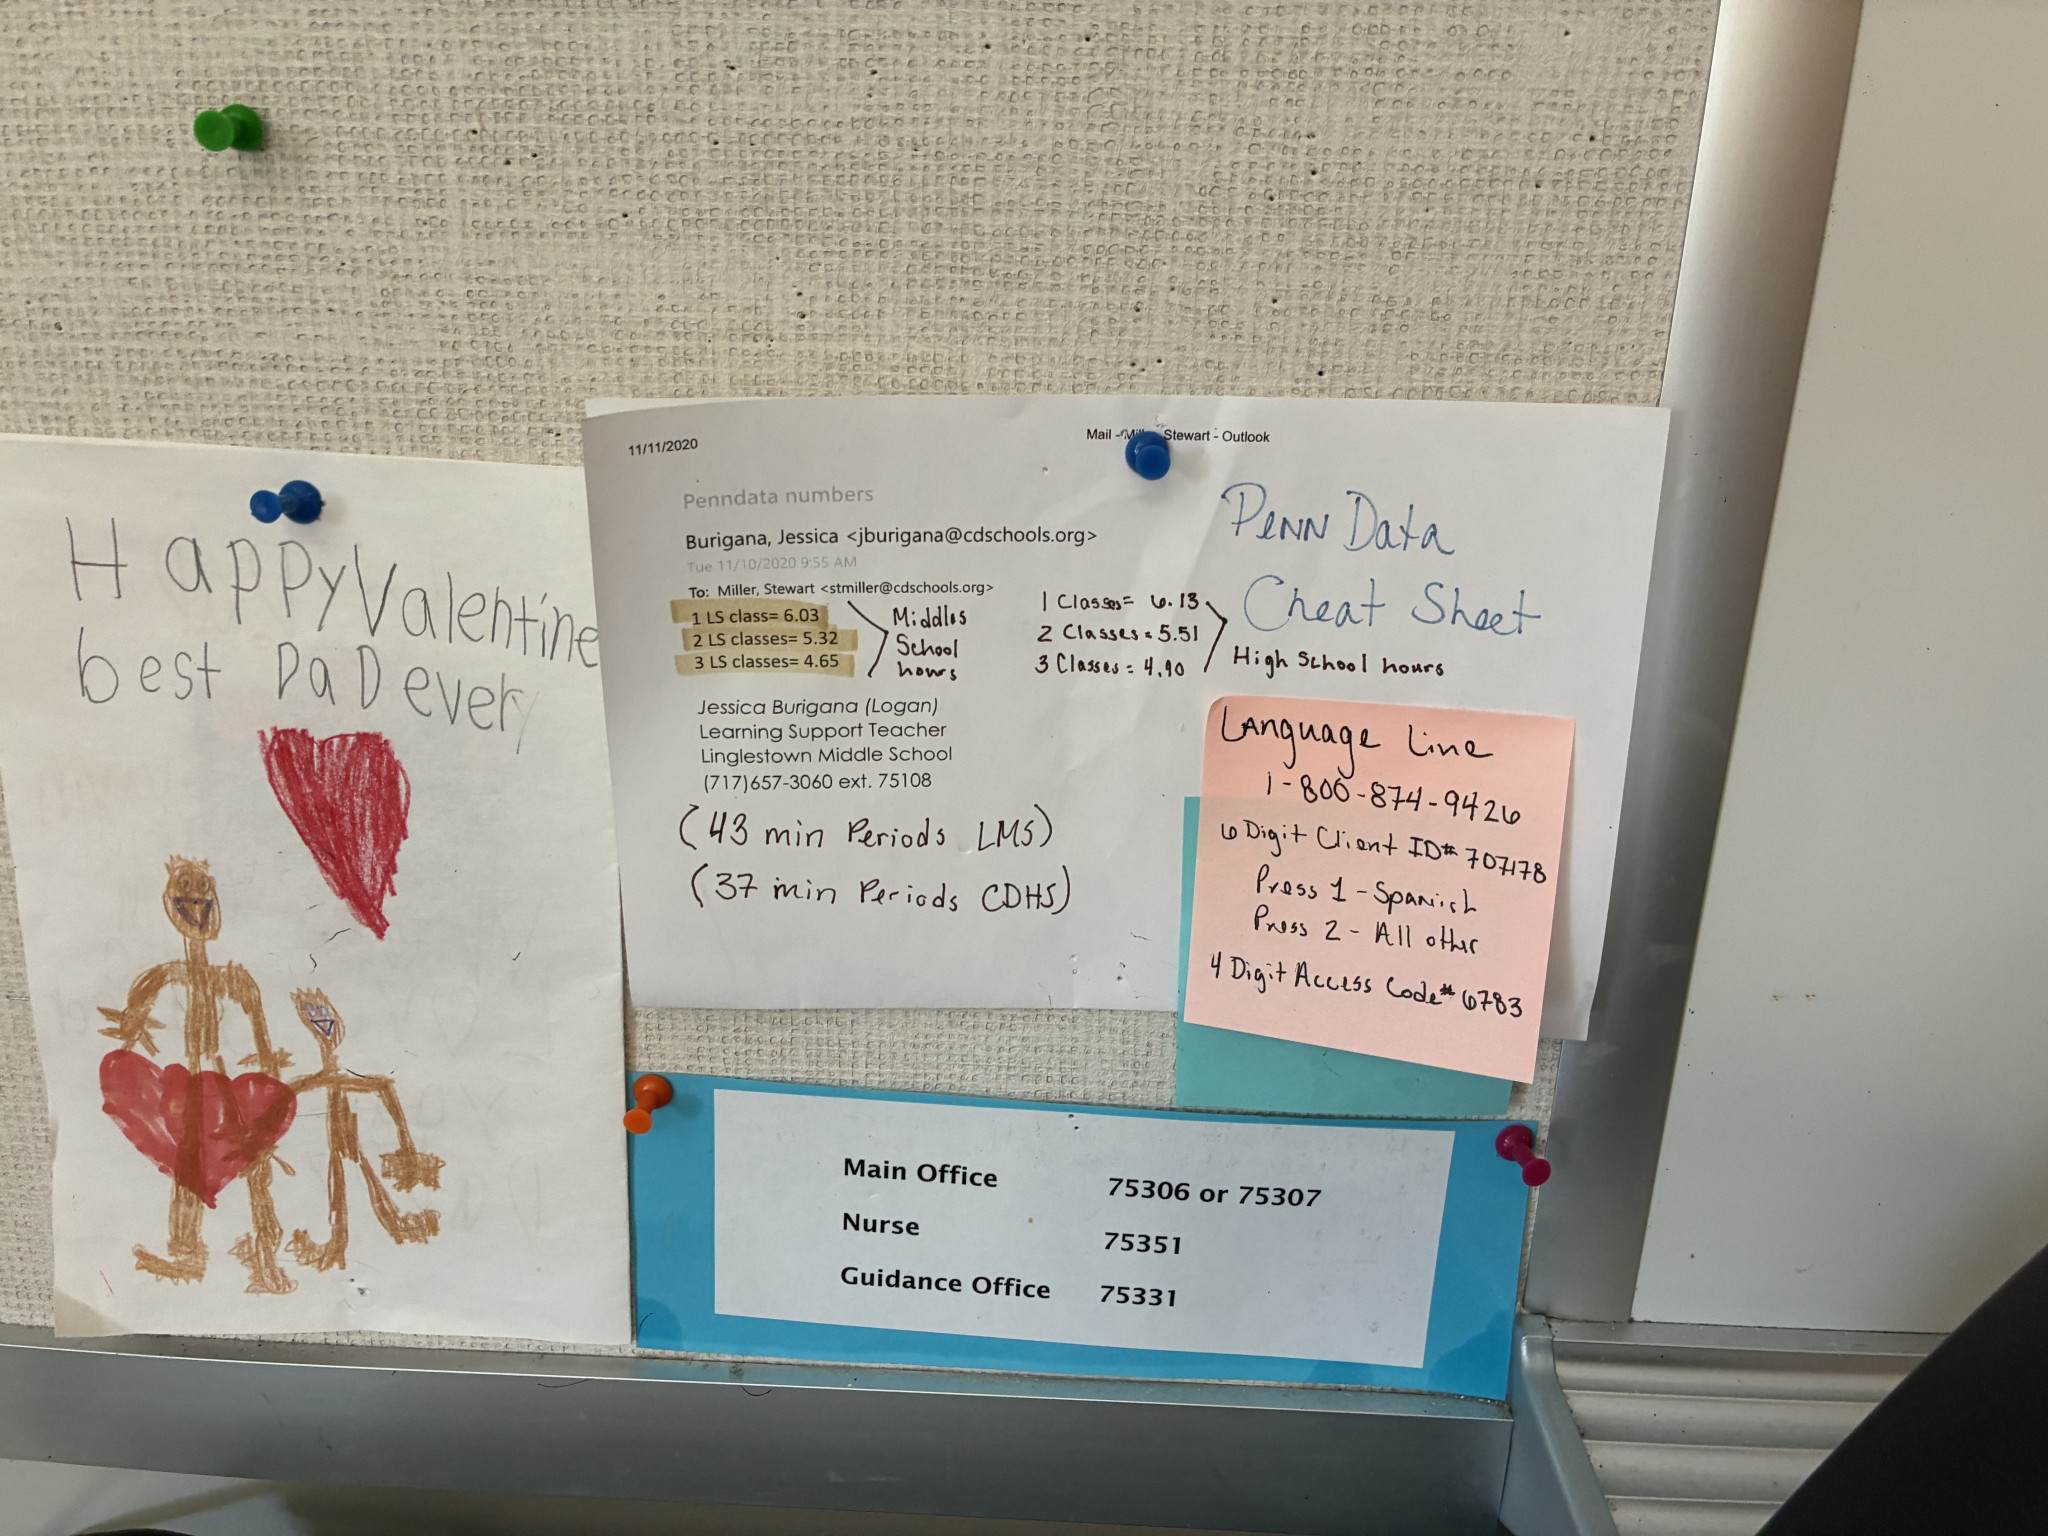 Happy Valentine
best DaD ever
11/11/2020
Mail - Stewart - Outlook
Penndata numbers
Burigana, Jessica <jburigana@cdschools.org>
Tue 11/10/2020 9:55 AM
To: Miller, Stewart <stmiller@cdschools.org>
1 LS class= 6.03
2 LS classes= 5.32
3 LS classes= 4.65
Middles
School
hours
1 Classes= 6.13
2 Classes = 5.51
3 Classes = 4.90
High School hours
Penn Data
Cheat Sheet
Jessica Burigana (Logan)
Learning Support Teacher
Linglestown Middle School
(717)657-3060 ext. 75108
(43 min Periods LMS)
(37 min Periods CDHS)
Language Line
1-800-874-9426
6 Digit Client ID# 707178
Press 1 - Spanish
Press 2 - All other
4 Digit Access Code# 6783
Main Office 75306 or 75307
Nurse 75351
Guidance Office 75331